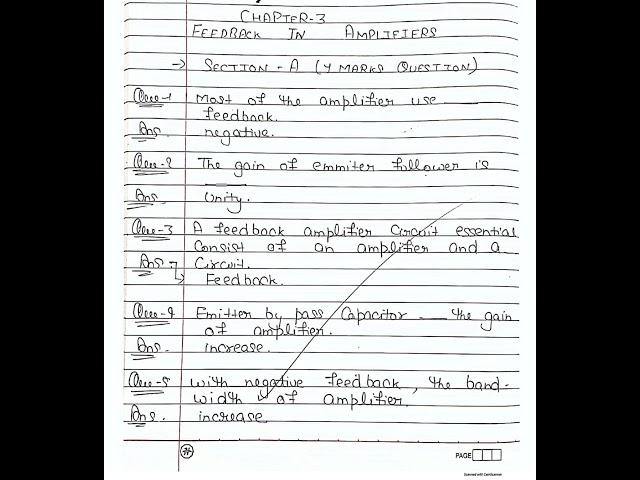 CHAPTER-3
FEEDBACK IN AMPLIFIERS
→ SECTION - A (1 MARKS QUESTION)
Que-1 Most of the amplifier use ___
feedback.
Ans. negative.
Que-2 The gain of emmiter follower is
___
Ans. Unity.
Que-3 A feedback amplifier Circuit essential
Consist of an amplifier and a
___ Circuit.
Ans → Feedback.
Que-4 Emitter by pass Capacitor ___ the gain
of amplifier.
Ans. increase.
Que-5 With negative feedback, the band-
width of amplifier.
Ans. increase
PAGE
Scanned with CamScanner